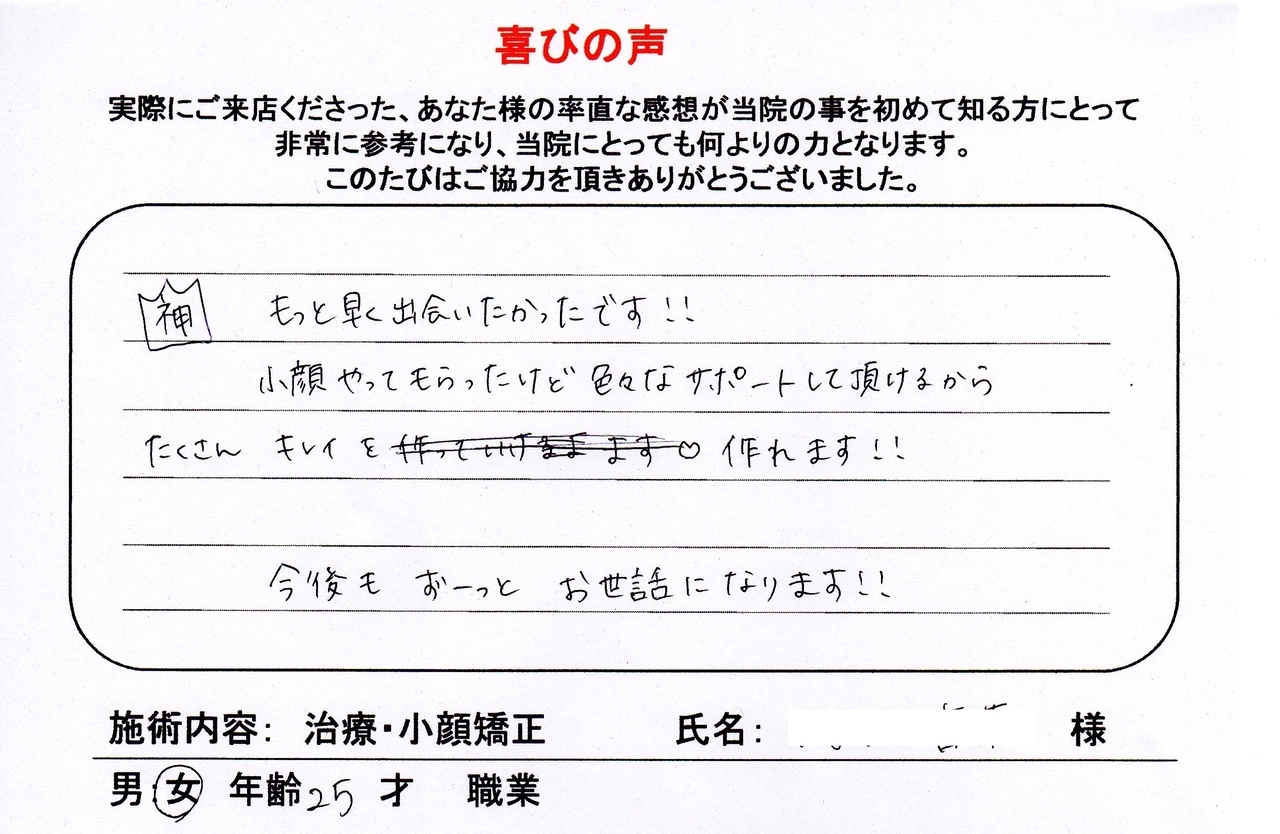 喜びの声
実際にご来店くださった、あなた様の率直な感想が当院の事を初めて知る方にとって
非常に参考になり、当院にとっても何よりの力となります。
このたびはご協力を頂きありがとうございました。
神 もっと早く出会いたかったです!!
小顔やってもらったけど色々なサポートして頂けるから
たくさん キレイを ます♡ 作れます!!
今後も ずーっと お世話になります!!
施術内容: 治療・小顔矯正 氏名: 様
男:女 年齢25才 職業